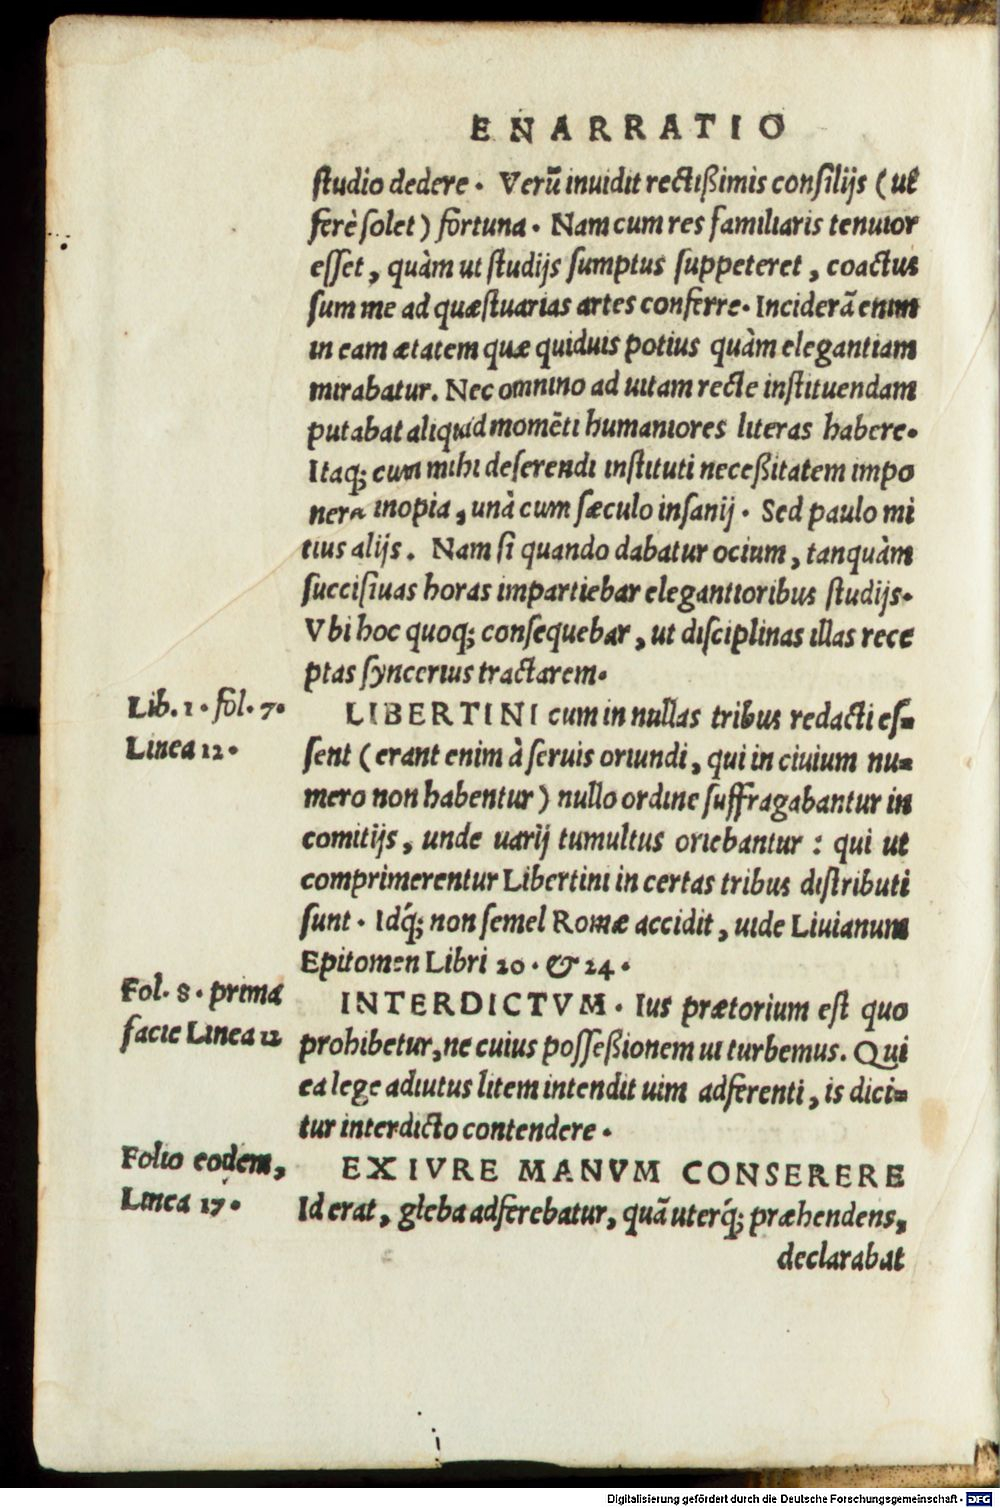 ENARRATIO
studio dedere. Verũ inuidit rectißimis consilijs (ut
ferè solet) fortuna. Nam cum res familiaris tenuior
esset, quàm ut studijs sumptus suppeteret, coactus
sum me ad quæstuarias artes conferre. Inciderã enim
in eam ætatem quæ quiduis potius quàm elegantiam
mirabatur. Nec omnino ad uitam recte instituendam
putabat aliquid momẽti humaniores literas habere.
Itaq; cum mihi deserendi instituti neceßitatem impo
nere inopia, unà cum sæculo insanij. Sed paulo mi
tius alijs. Nam si quando dabatur ocium, tanquàm
succisiuas horas impartiebar elegantioribus studijs.
Vbi hoc quoq; consequebar, ut disciplinas illas rece
ptas syncerius tractarem.
Lib. 1. fol. 7.
Linea 12.
LIBERTINI cum in nullas tribus redacti es=
sent (erant enim à seruis oriundi, qui in ciuium nu=
mero non habentur) nullo ordine suffragabantur in
comitijs, unde uarij tumultus oriebantur: qui ut
comprimerentur Libertini in certas tribus distributi
sunt. Idq́; non semel Romæ accidit, uide Liuianum
Epitomen Libri 20. & 24.
Fol. 8. prima
facie Linea 12
INTERDICTVM. Ius prætorium est quo
prohibetur, ne cuius possessionem ui turbemus. Qui
ea lege adiutus litem intendit uim adferenti, is dici=
tur interdicto contendere.
Folio eodem,
Linea 17.
EX IVRE MANVM CONSERERE
Id erat, gleba adferebatur, quã uterq́; præhendens,
declarabat
Digitalisierung gefördert durch die Deutsche Forschungsgemeinschaft - DFG